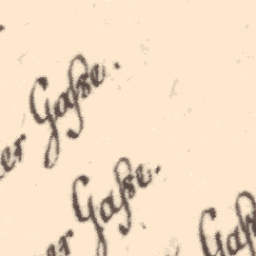 er Gaſse.
er Gaſse.
Gaſs